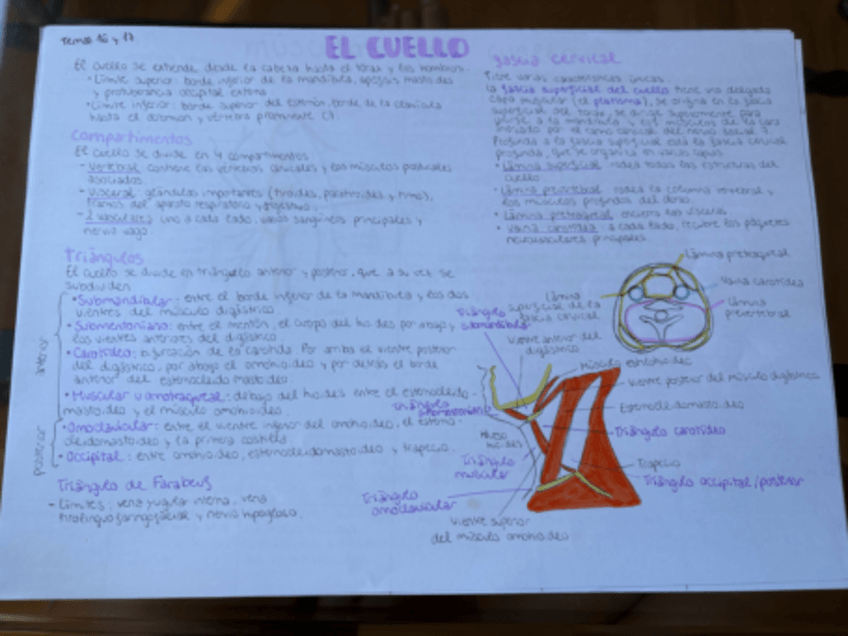 Temas 16 y 17
EL CUELLO
El cuello se extiende desde la cabeza hasta el tórax y los hombros.
• Límite superior: borde inferior de la mandíbula, apófisis mastoides
y protuberancia occipital externa.
• Límite inferior: borde superior del esternón, borde de la clavícula
hasta el acromion y vértebra prominente C7.
Compartimentos
El cuello se divide en 4 compartimentos
- Vertebral: contiene las vértebras cervicales y los músculos posturales
asociados.
- Visceral: glándulas importantes (tiroides, paratiroides y timo),
tramos del aparato respiratorio y digestivo.
- 2 vasculares: uno a cada lado, vasos sanguíneos principales y
nervio vago.
Triángulos
El cuello se divide en triángulo anterior y posterior, que a su vez se
subdividen
anterior
• Submandibular: entre el borde inferior de la mandíbula y los dos
vientres del músculo digástrico.
• Submentoniano: entre el mentón, el cuerpo del hioides por abajo y
los vientres anteriores del digástrico.
• Carotídeo: bifurcación de la carótida. Por arriba el vientre posterior
del digástrico, por abajo el omohioideo y por detrás el borde
anterior del esternocleidomastoideo.
• Muscular u omotraqueal: debajo del hioides entre el esternocleido-
mastoideo y el músculo omohioideo.
posterior
• Omoclavicular: entre el vientre inferior del omohioideo, el esterno-
cleidomastoideo y la primera costilla.
• Occipital: entre omohioideo, esternocleidomastoideo y trapecio.
Triángulo de Farabeuf
- Límites: vena yugular interna, vena
tirolinguofaringofacial y nervio hipogloso.
fascia cervical
Tiene varias características únicas.
La fascia superficial del cuello tiene una delgada
capa muscular (el platisma), se origina en la fascia
superficial del tórax, se dirige superiormente para
unirse a la mandíbula y los músculos de la cara
inervado por el ramo cervical del nervio facial 7.
Profunda a la fascia superficial está la fascia cervical
profunda, que se organiza en varias capas
• Lámina superficial: rodea todas las estructuras del
cuello.
• Lámina prevertebral: rodea la columna vertebral y
los músculos profundos del dorso.
• Lámina pretraqueal: encierra las vísceras.
• Vaina carotídea: a cada lado, recubre los paquetes
neurovasculares principales.
Lámina pretraqueal
Vaina carotídea
Lámina
prevertebral
Lámina
superficial de la
fascia cervical
Triángulo
submandibular
Vientre anterior del
digástrico
Músculo estilohioideo
Vientre posterior del músculo digástrico
Esternocleidomastoideo
Triángulo
submentoniano
Hueso
hioides
Triángulo carotídeo
Triángulo
muscular
Trapecio
Triángulo occipital/posterior
Triángulo
omoclavicular
Vientre superior
del músculo omohioideo